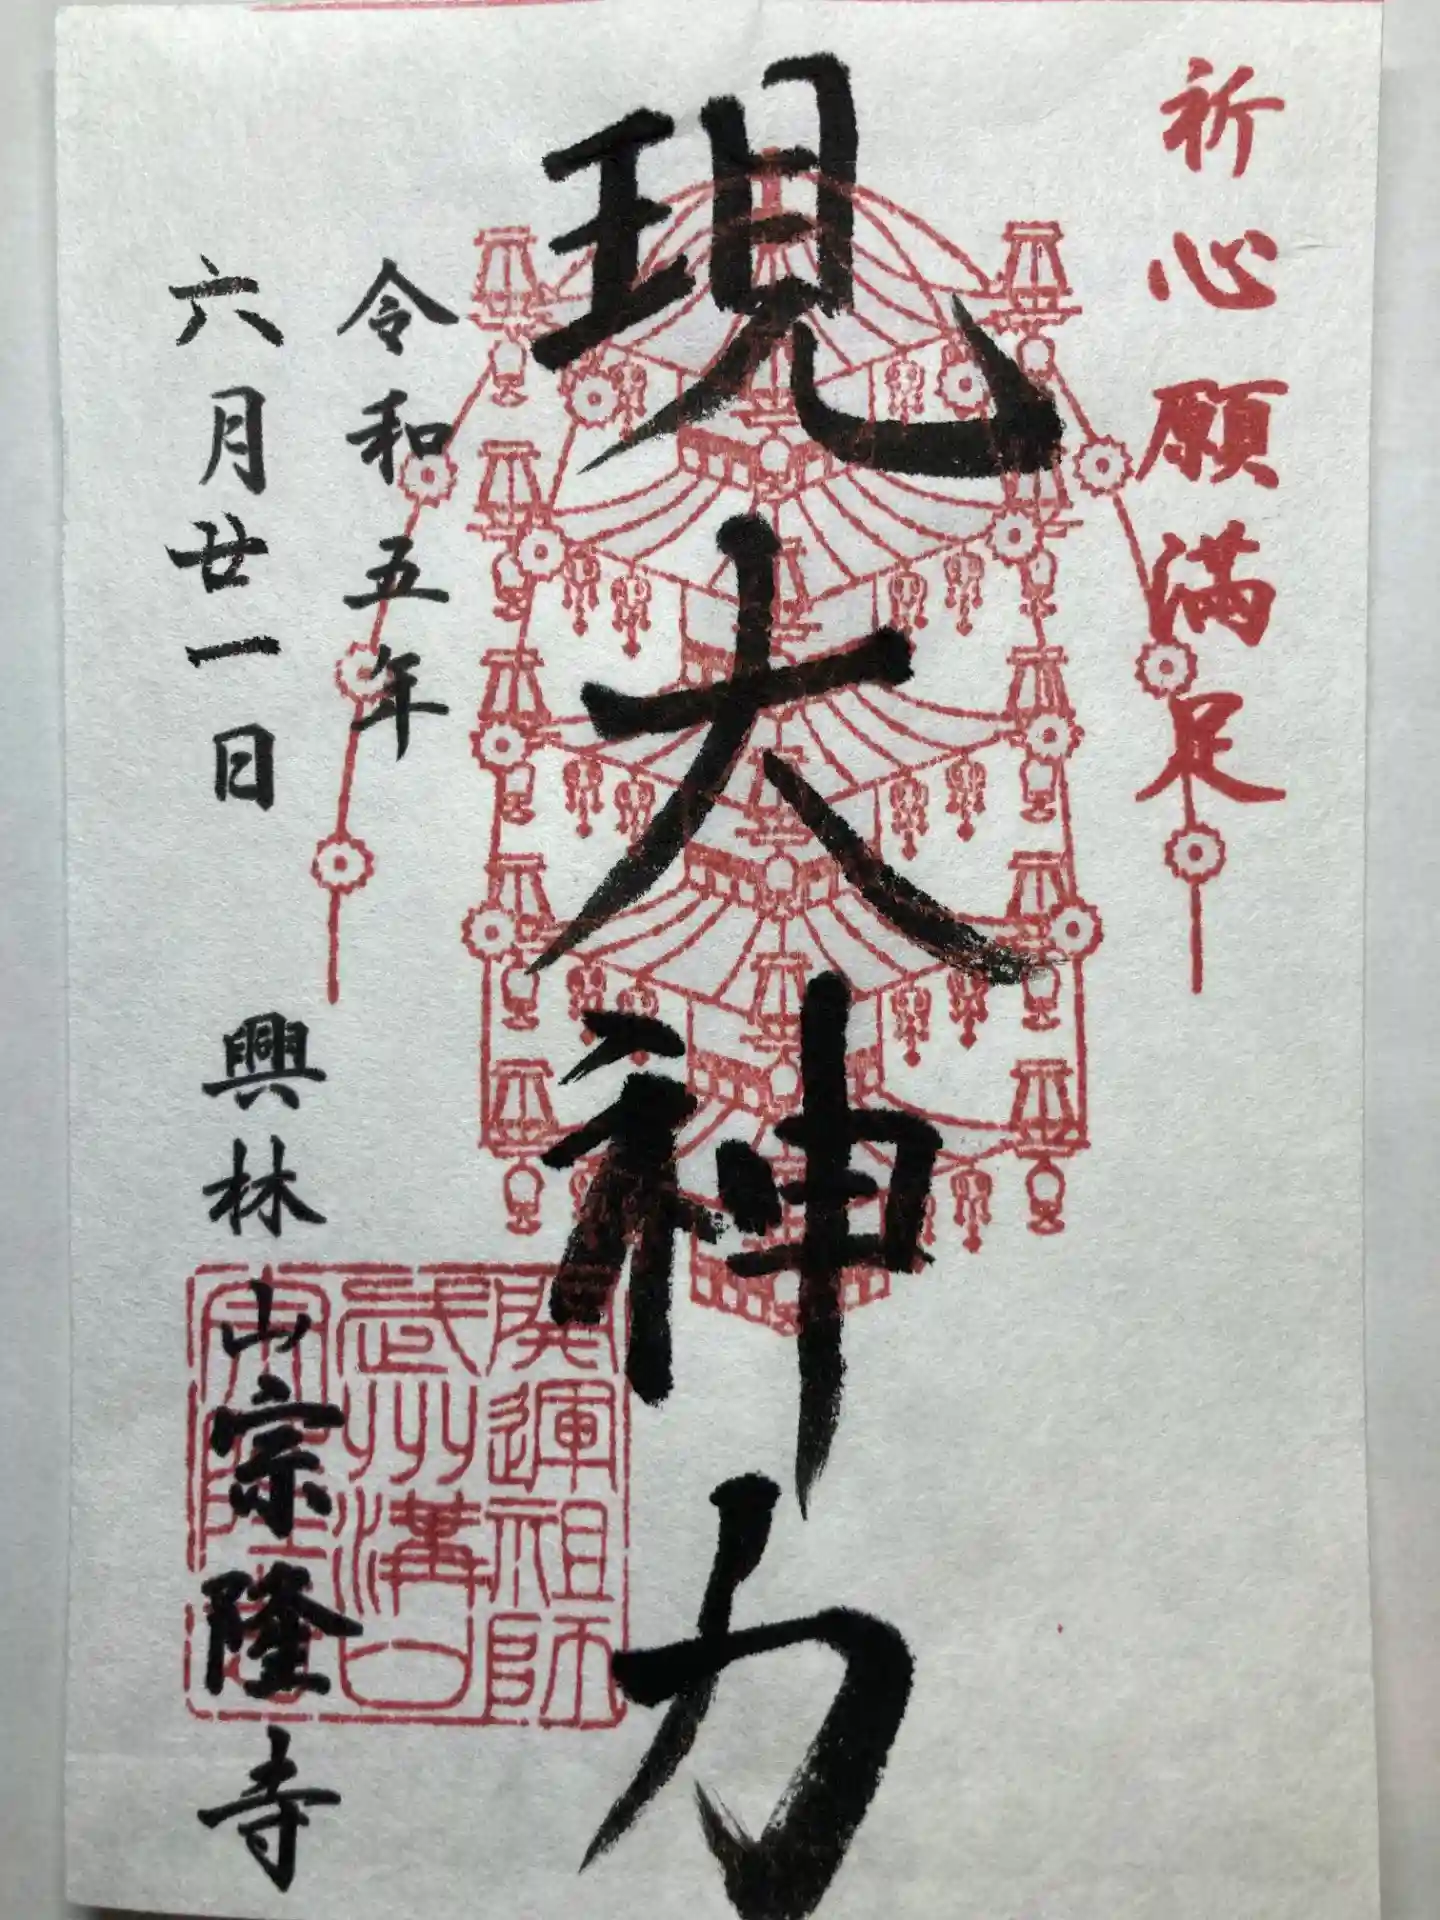 祈心願満足
現大神力
令和五年
六月廿一日
興林山宗隆寺
開運祖師
武州溝口
宗隆寺